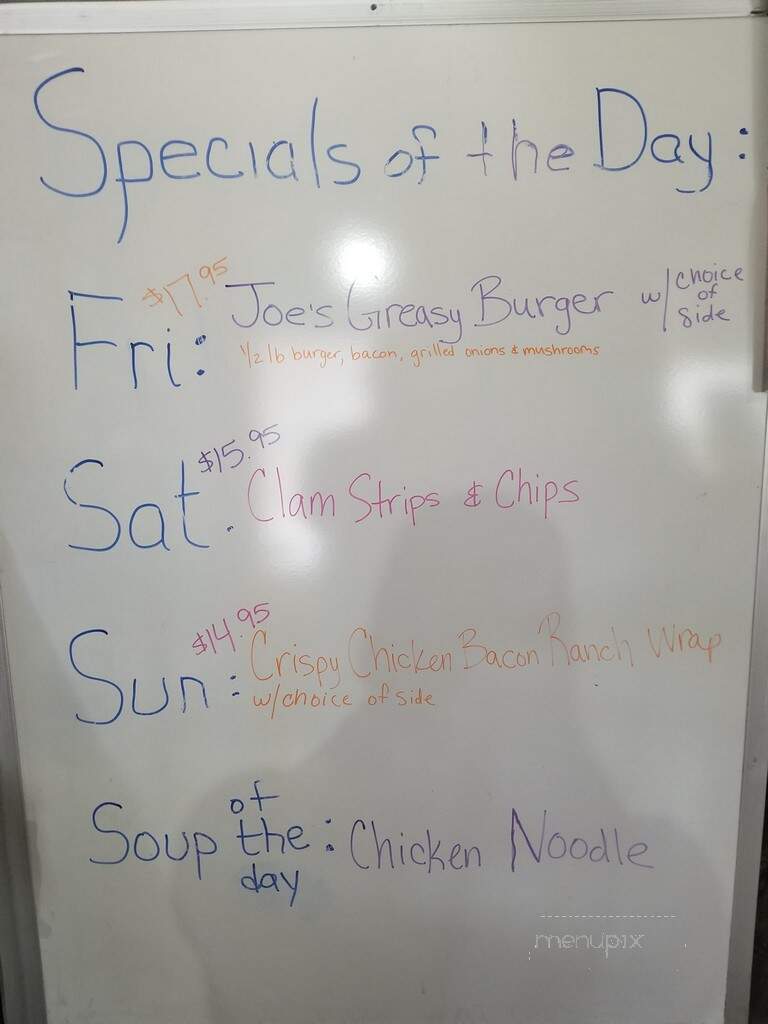 Specials of the Day:
Fri: $17.95 Joe's Greasy Burger w/ choice of side
1/2 lb burger, bacon, grilled onions & mushrooms
Sat. $15.95 Clam Strips & Chips
Sun: $14.95 Crispy Chicken Bacon Ranch Wrap
w/choice of side
Soup of the day: Chicken Noodle
menupix